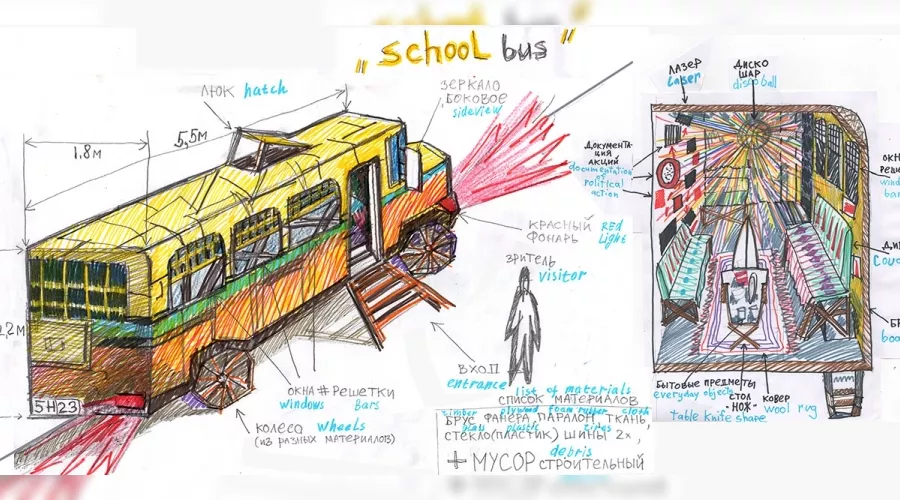 „school bus"
люк hatch
5,5м
1.8м
зеркало
боковое
sideview
красный
фонарь
RED
light
зритель
visitor
вход
entrance
окна # решетки
windows bars
колеса wheels
(из разных материалов)
5Н|23
list of materials
список материалов
timber plywood foam rubber cloth
брус фанера паралон, ткань,
glass plastic tires
стекло(пластик) шины 2х,
debris
+ мусор строительный
лазер
laser
диско
шар
disco ball
документа-
ция
акций
documentation
of
political
action
бытовые предметы
everyday objects
стол
-нож-
table knife shape
ковер
wool rug